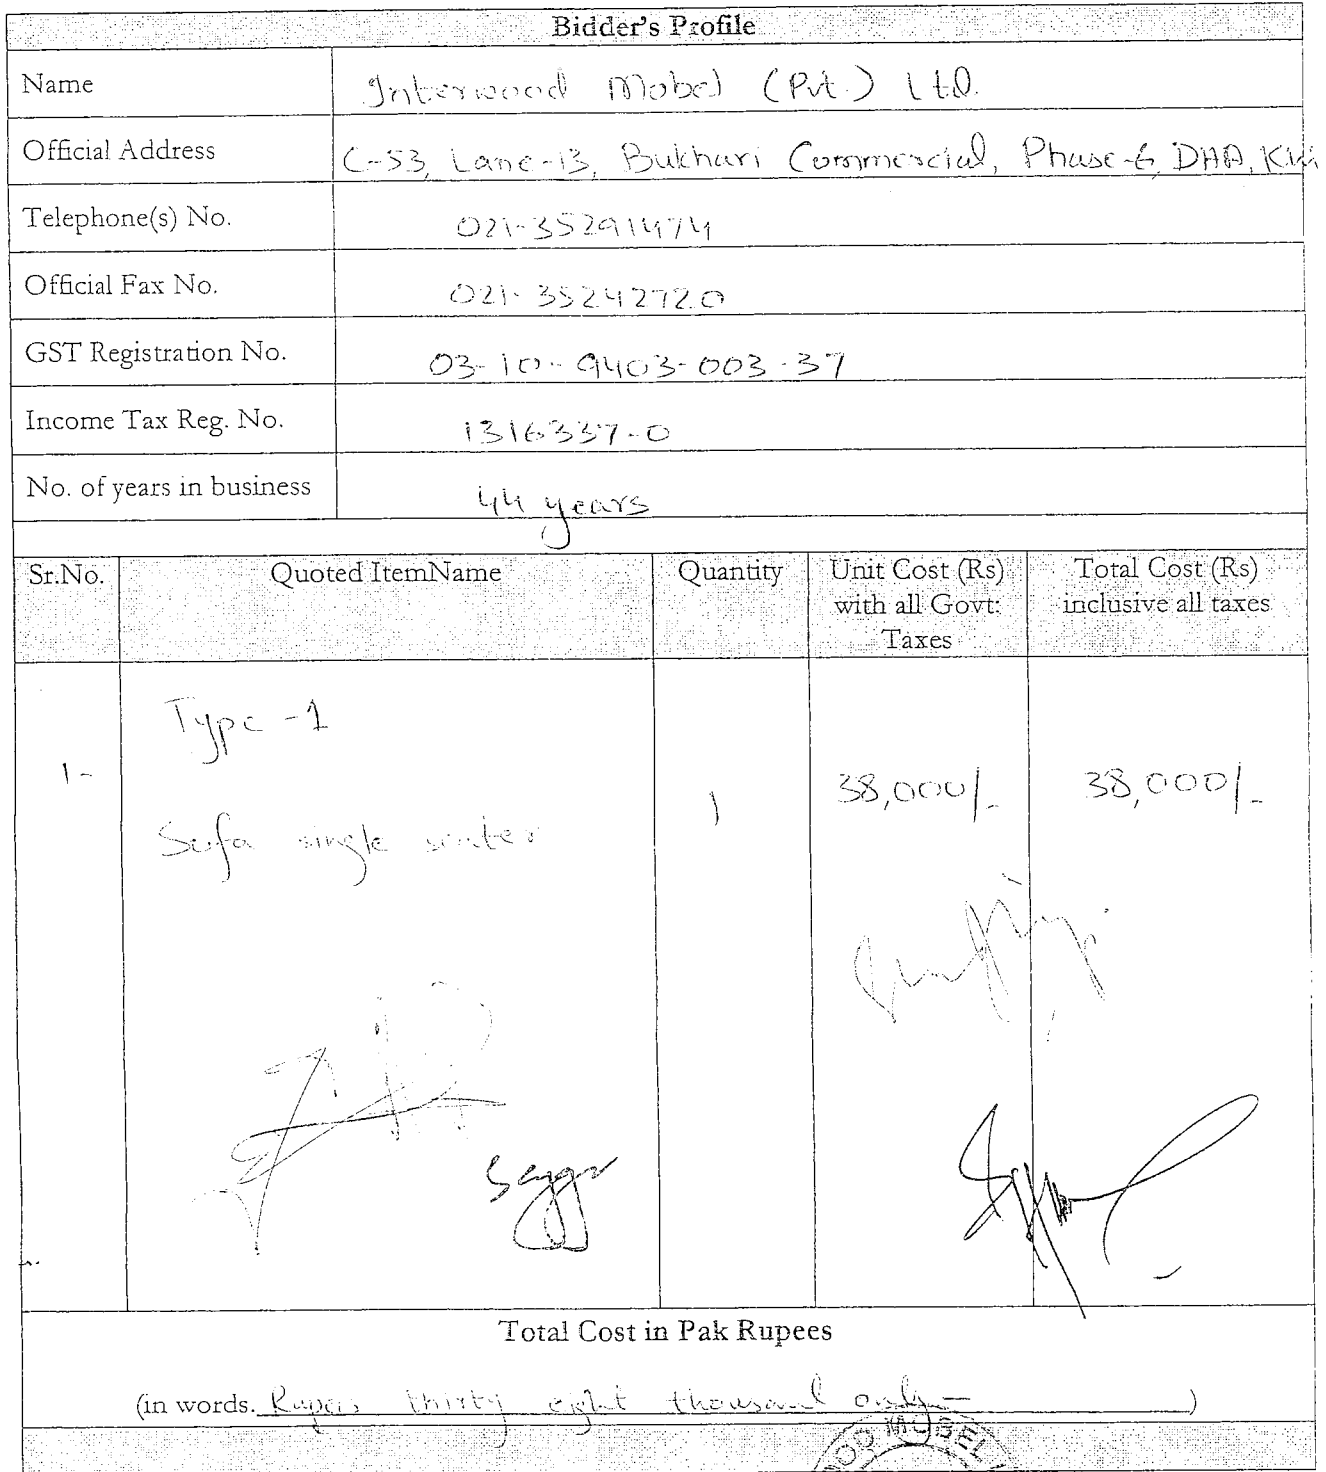 Bidder's Profile
Name Interwood Mobel (Pvt.) Ltd.
Official Address C-53, Lane-13, Bukhari Commercial, Phase-6, DHA, Khi
Telephone(s) No. 021-35291474
Official Fax No. 021-35242720
GST Registration No. 03-10-9403-003-37
Income Tax Reg. No. 1316337-0
No. of years in business 44 years
Sr.No. Quoted ItemName Quantity Unit Cost (Rs) with all Govt: Taxes Total Cost (Rs) inclusive all taxes
Type -1
1- Sofa single seater 1 38,000/- 38,000/-
Total Cost in Pak Rupees
(in words. Rupees thirty eight thousand only )
MOBEL